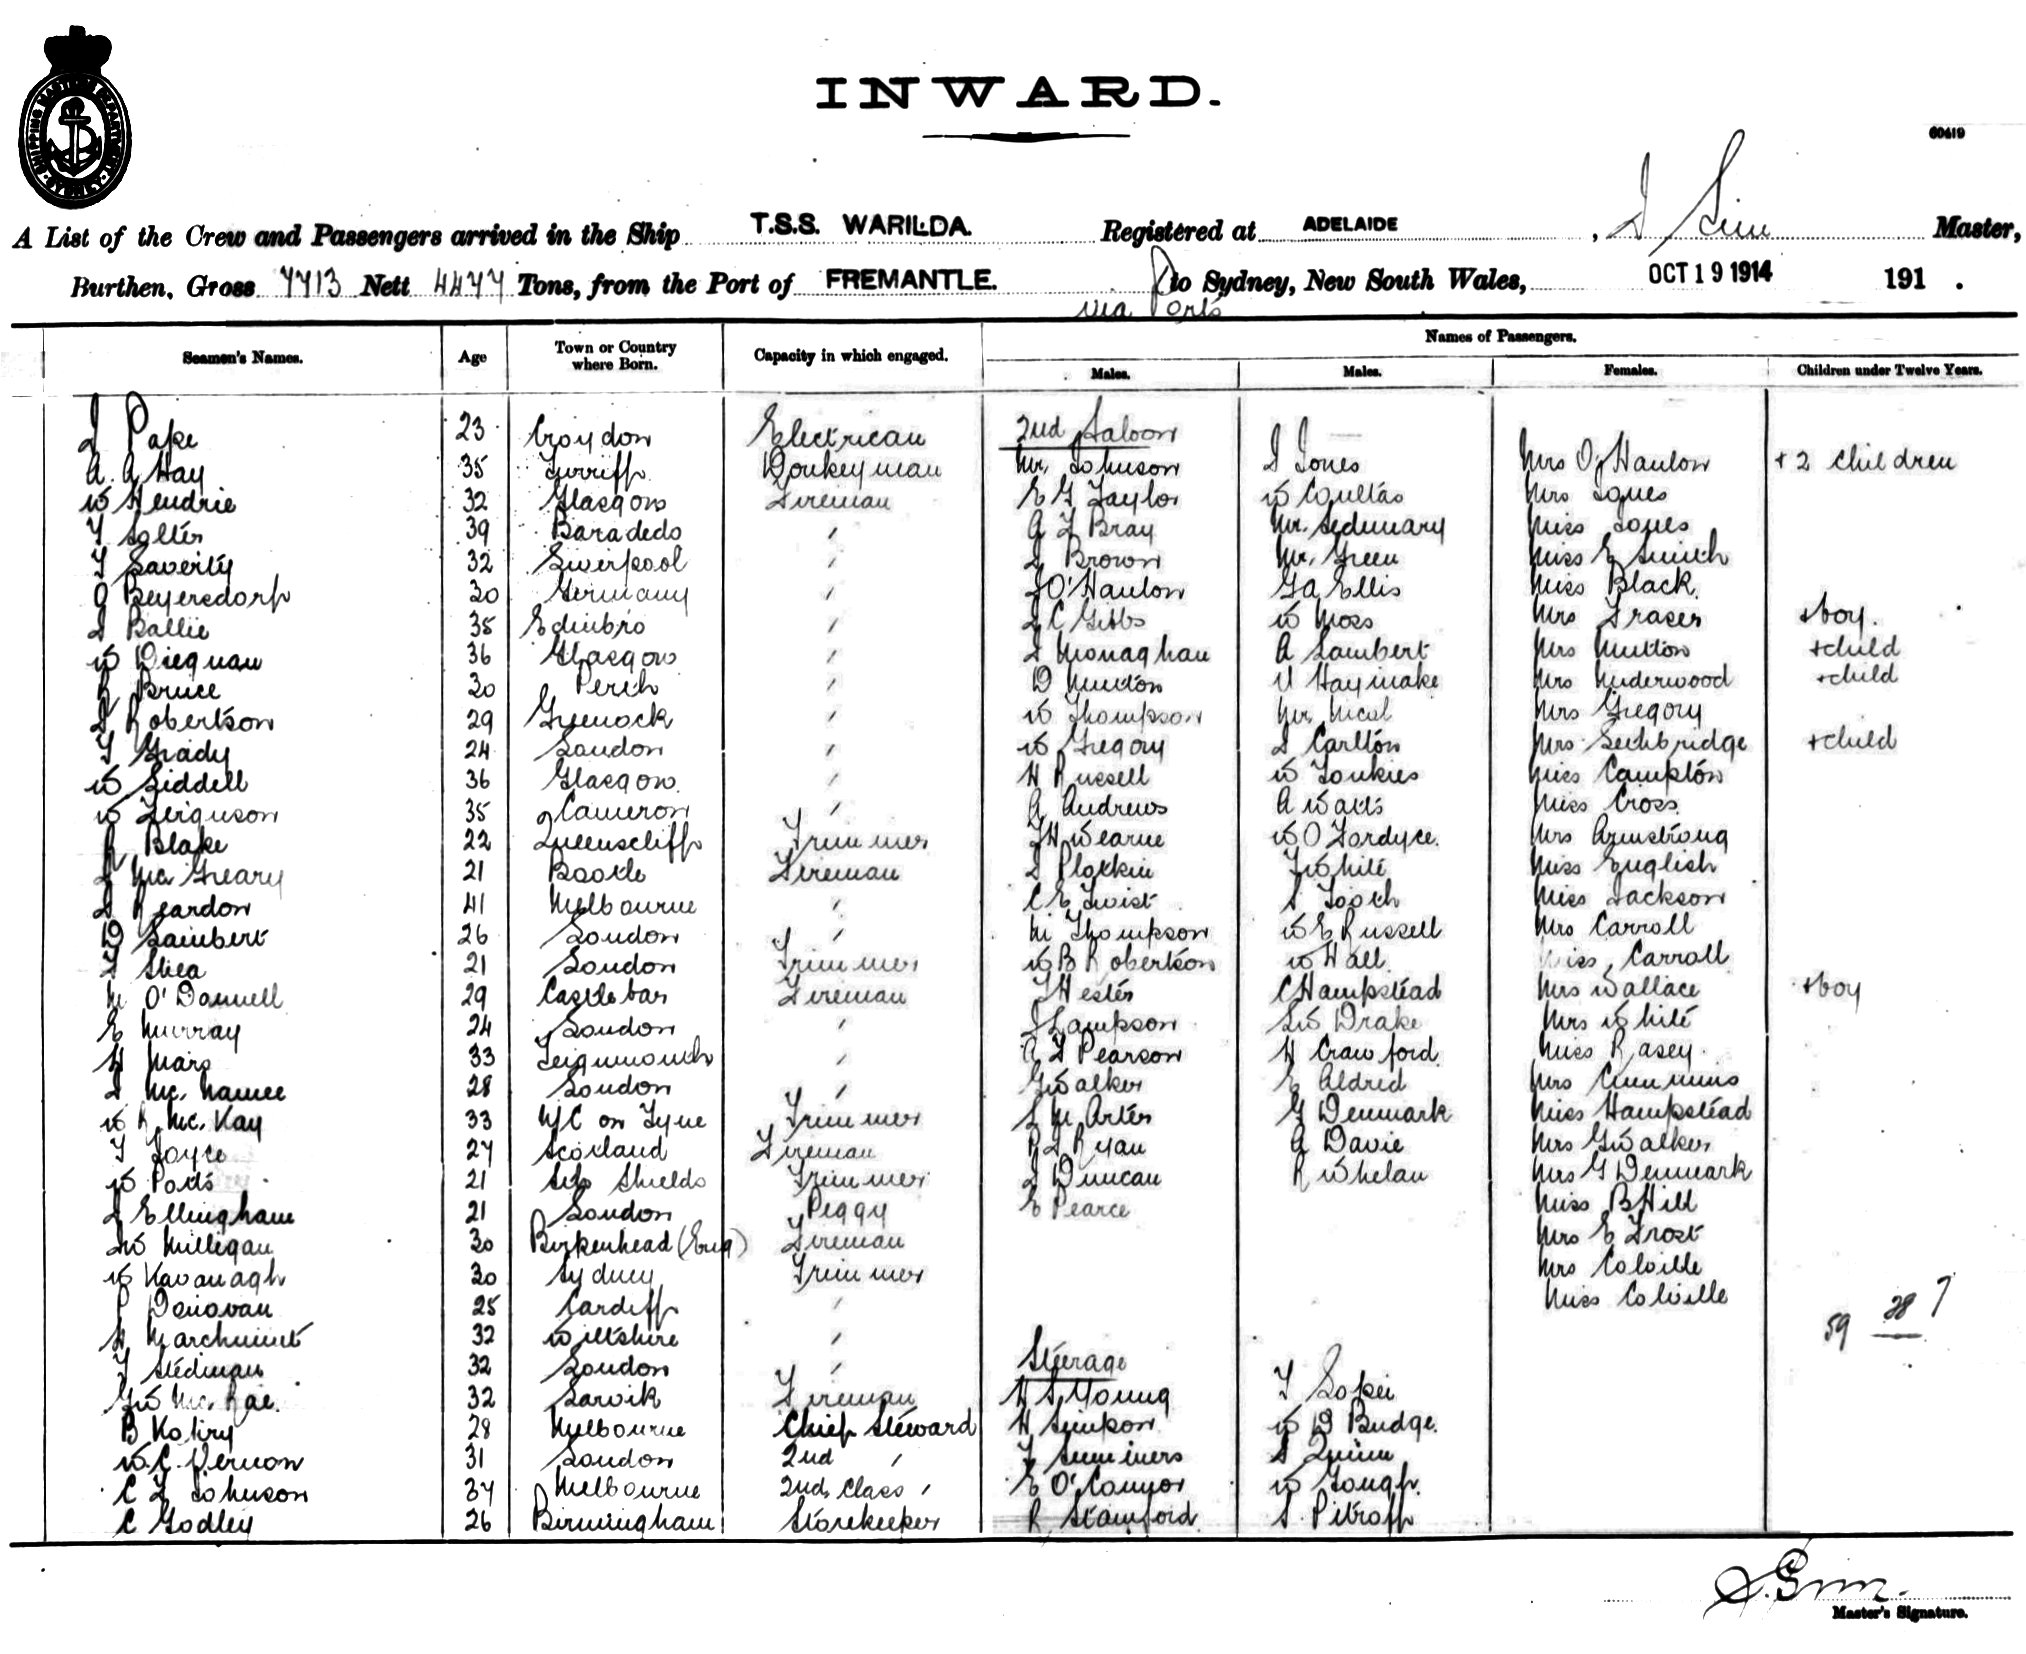 SHIPPING MASTERS DEPARTMENT
SYDNEY
INWARD.
60419
A List of the Crew and Passengers arrived in the Ship T.S.S. WARILDA. Registered at ADELAIDE, J Sim Master,
Burthen, Gross 7713 Nett 4477 Tons, from the Port of FREMANTLE. via Ports to Sydney, New South Wales, OCT 19 1914 191 .
Seamen's Names. Age Town or Country where Born. Capacity in which engaged. Names of Passengers.
Males. Males. Females. Children under Twelve Years.
J Pape 23 Croydon Electrican 2nd Saloon
A. A Hay 35 Turriff Donkeyman Mr. Johnson J Jones Mrs O'Hanlon + 2 Children
W Hendrie 32 Glasgow Fireman E G Taylor W Coultas Mrs Jones
T Solter 39 Baradedo " A J Bray Mr. Sedunary Miss Jones
T Laverty 32 Liverpool " J Brown Mr. Green Miss E Smith
O Beyersdorf 30 Germany " J O'Hanlon G A Ellis Miss Black
J Ballie 35 Edinbro " J C Gibbs W Moss Mrs Fraser + boy.
W Diegnan 36 Glasgow " J Monaghan A Lambert Mrs Mutton + child
R Bruce 30 Perth " D Mutton V Haymake Mrs Underwood + child
J Robertson 29 Greenock " W Thompson Mr Nical Mrs Gregory
T Grady 24 London " W Gregory J Carlton Mrs Lethbridge + child
W Liddell 36 Glasgow. " H Russell W Tonkies Miss Campton
W Ferguson 35 Cameron " A Andrews A Watts Miss Cross
R Blake 22 Queenscliff Trimmer J H Wearne W O Fordyce. Mrs Armstrong
J McGreary 21 Bootle Fireman J Plotkin J White Miss English
J Reardon 41 Melbourne " C E Twist S Tooth Miss Jackson
D Lambert 26 London " M Thompson W E Russell Mrs Carroll
J Shea 21 London Trimmer W B Robertson W Hall Miss Carroll
M O'Donnell 29 Castlebar Fireman J Hester C Hampstead Mrs Wallace + boy
E Murray 24 London " J Lampson S W Drake Mrs White
H Mars 33 Teignmouth " A J Pearson H Crawford Miss Rasey
J Mc. Namee 28 London " G Walker E Aldred Mrs Cummins
W R Mc. Kay 33 N/C on Tyne Trimmer S M Arter G Denmark Miss Hampstead
T Joyce 27 Scotland Fireman P J Ryan A Davie Mrs G Walker
W Potts 21 Sth Shields Trimmer J Duncan R Whelan Mrs G Denmark
J Ellingham 21 London Peggy E Pearce Miss B Hill
W Milligan 30 Birkenhead (Eng) Fireman Mrs E Frost
W Kavanagh 30 Sydney Trimmer Mrs Colville
P Donovan 25 Cardiff " Miss Colville
59 28 7
H Marchment 32 Wiltshire "
T Stedman 32 London " Steerage
G W Mc. Rae. 32 Larvik Fireman H S Young T
B 28 Melbourne Chief Steward H Simpson W D Budge.
W. C. Vernon 31 London 2nd " T Summers S Quinn
C J Johnson 37 Melbourne 2nd Class " E O'Connor W Gough.
C Godley 26 Birmingham Storekeeper R Stamford S Pitroff
J. Sim.
Master's Signature.